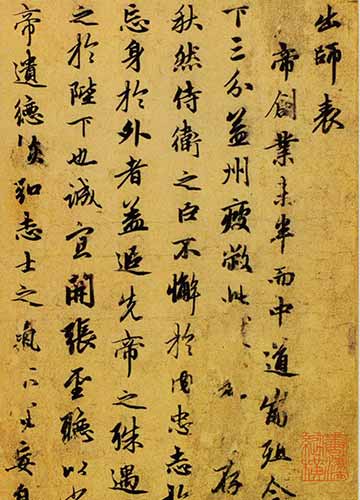 出師表
帝創業未半而中道崩殂今
下三分益州疲敝此 存
秋然侍衛之臣不懈於內忠志
忘身於外者蓋追先帝之殊遇
之於陛下也誠宜開張聖聽以光
帝遺德恢弘志士之氣不宜妄自